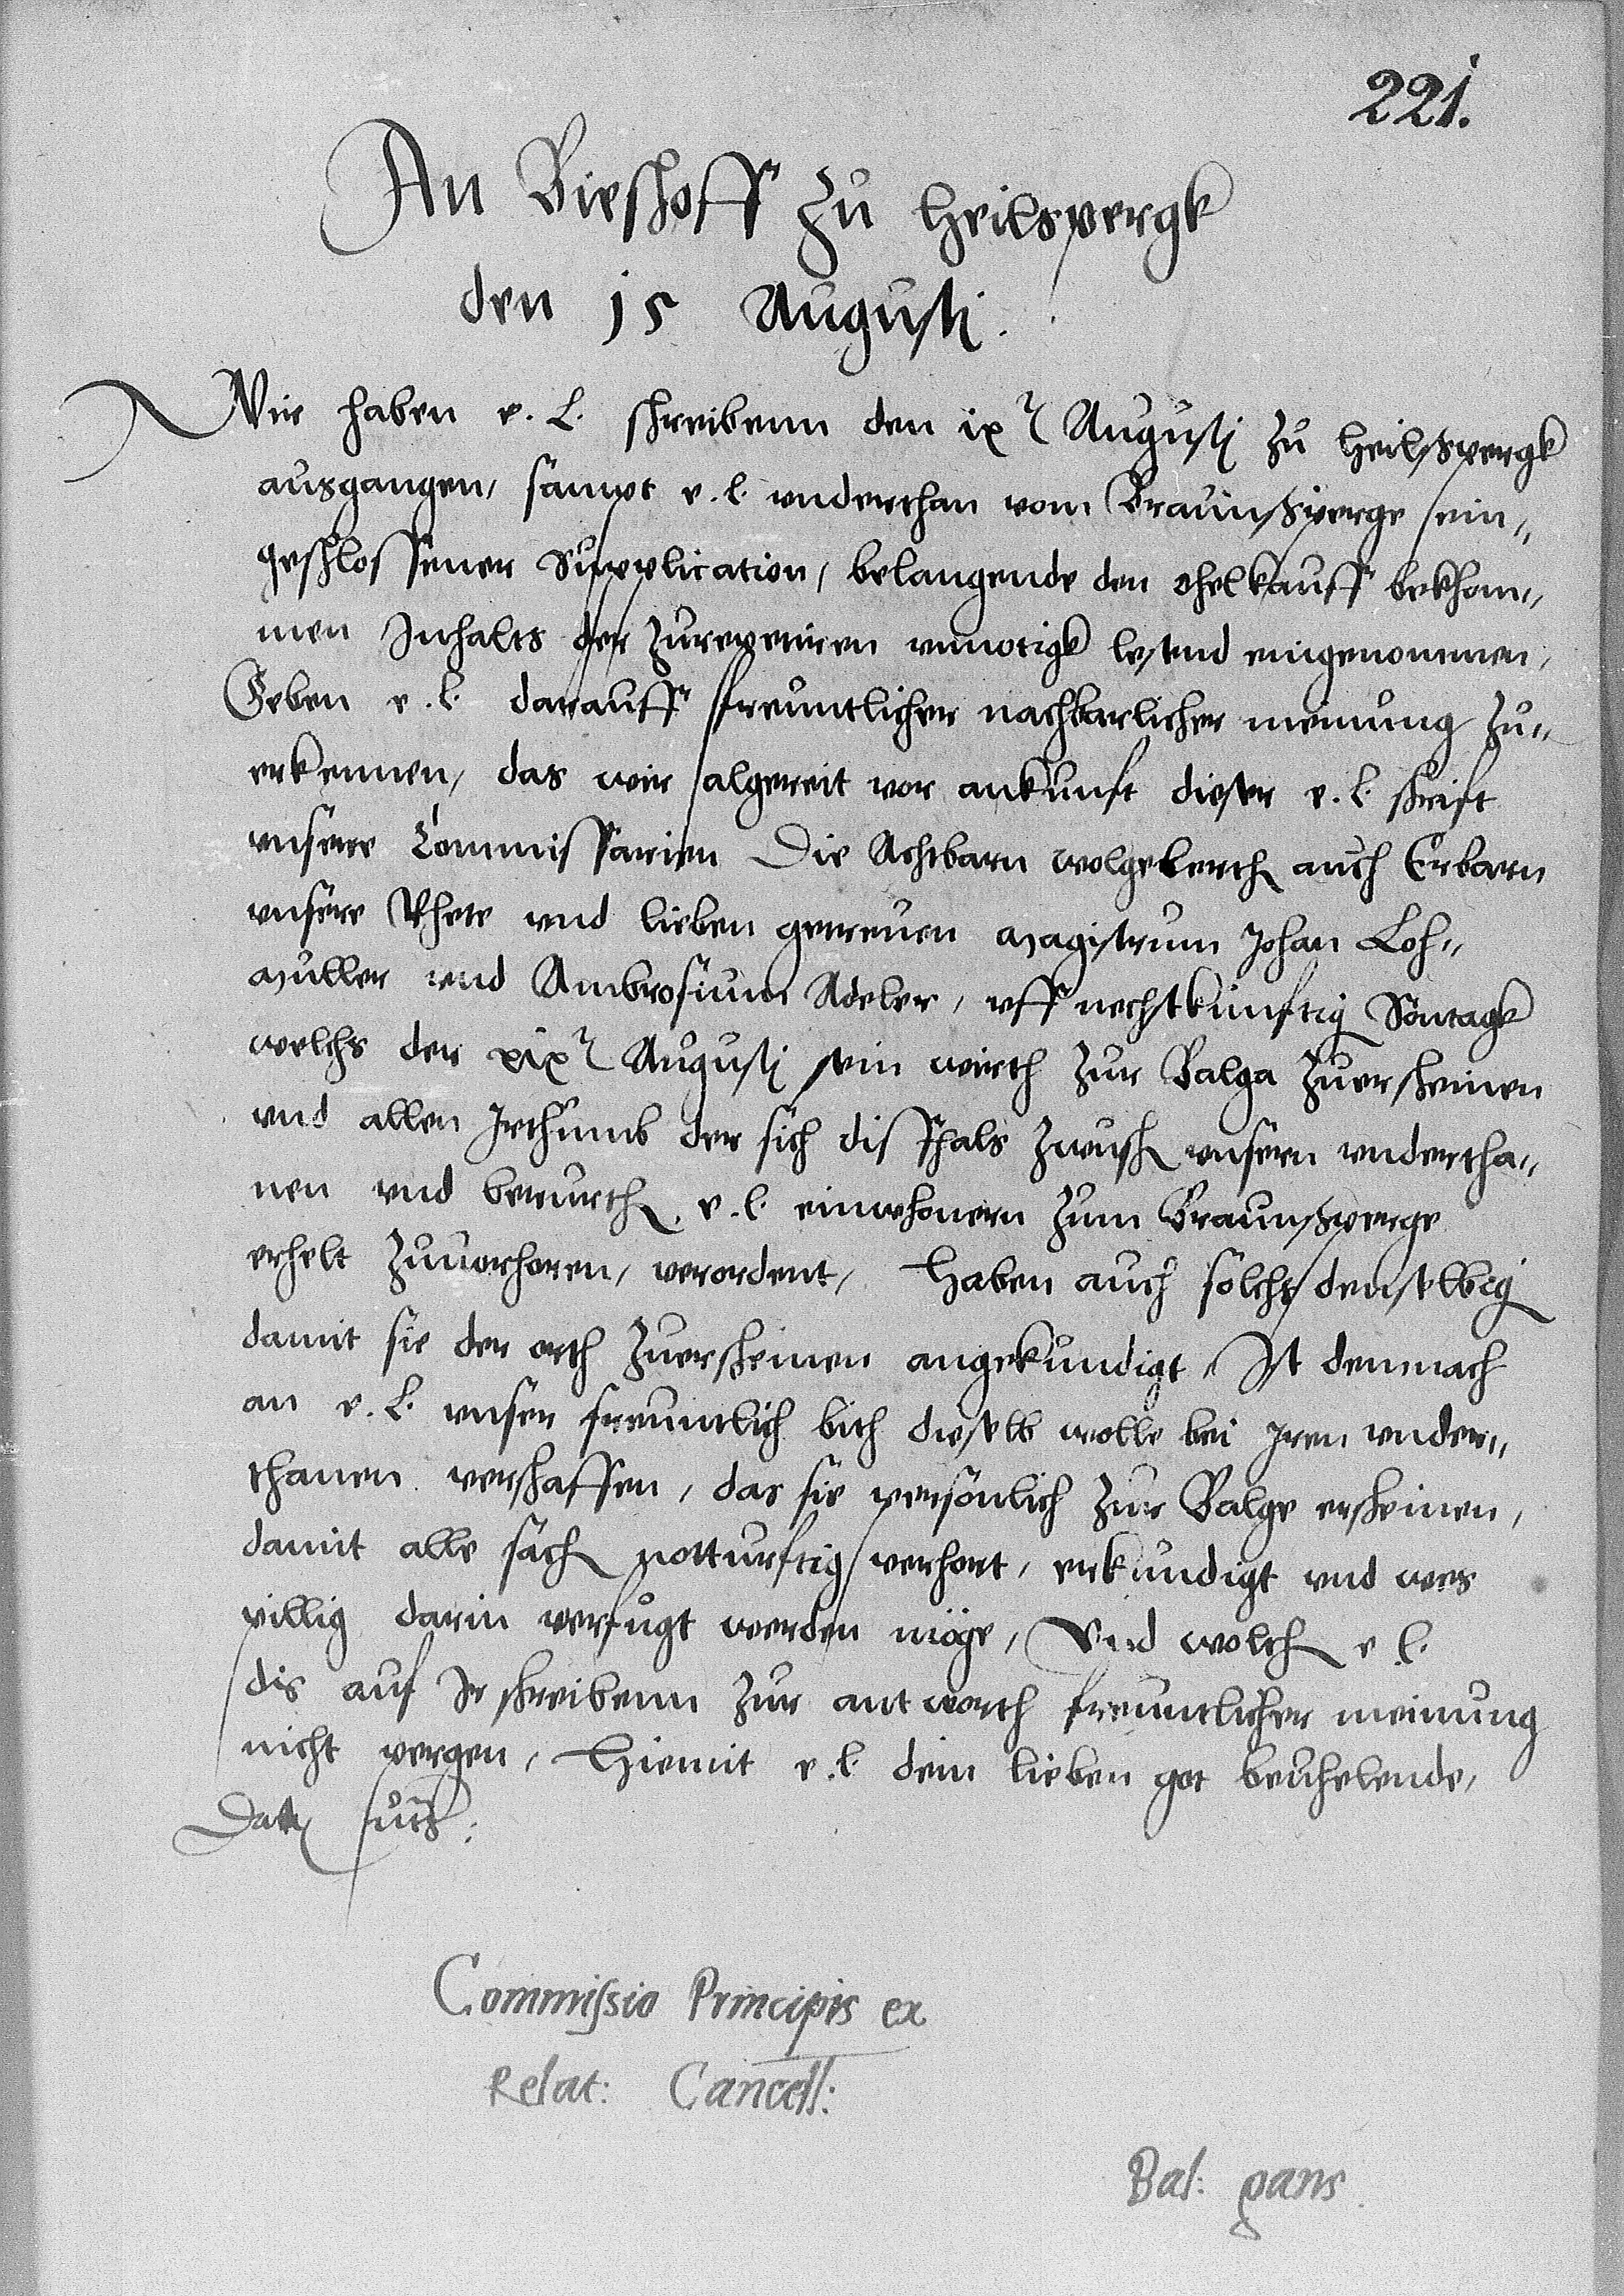 221.
An Bischoff zu Heilspergk
den 15 Augusti.
Wir haben e. L. schreibenn den ix Augusti zu Heilspergk
ausgangen, sampt e. l. underthan vom Braunsperge ein„
geschlossener Supplication, belangende den ohelkauff bekhom„
men Inhalts der zurepetiren unnotigk lesend eingenommen,
Geben e. l. darauff freuntlicher nachbarlicher meinung zu„
erkennen, das wir algereit vor ankunft dieser e. l. schrift
unsere Commissarien Die Achtbarn wolgelerth auch Erbarn
unsere Rhete und lieben getreuen Magistrum Johan Loh„
Muller und Ambrosium Adeler, uff nechstkunftig Sontagk
welchs der xix Augusti sein wirth zur Balga zuerscheinen
und allen Irthumb der sich disfhals zwusch unsern undertha„
nen und berurth e. l. einwhonern zum Braunsperge
erhelt zuuorhoren, verordent, Haben auch solchs denselbig
damit sie der orth zuerscheinen angekundigt, Ist demnach
an e. L. unser freuntlich bith dieselb wolle bei Iren under„
thanen verschaffen, das sie personlich zur Balge erscheinen,
damit alle sach notturftig verhort, erkundigt und wes
pillig darin verfugt werden möge, Und wolth e l.
dis auf Ir schreibenn zur antworth freuntlicher meinung
nicht pergen, Hiemit e. l. dem lieben got beuhelende,
Dat uts:
Commissio Principis ex
Relat: Cancell:
Bal: gans.